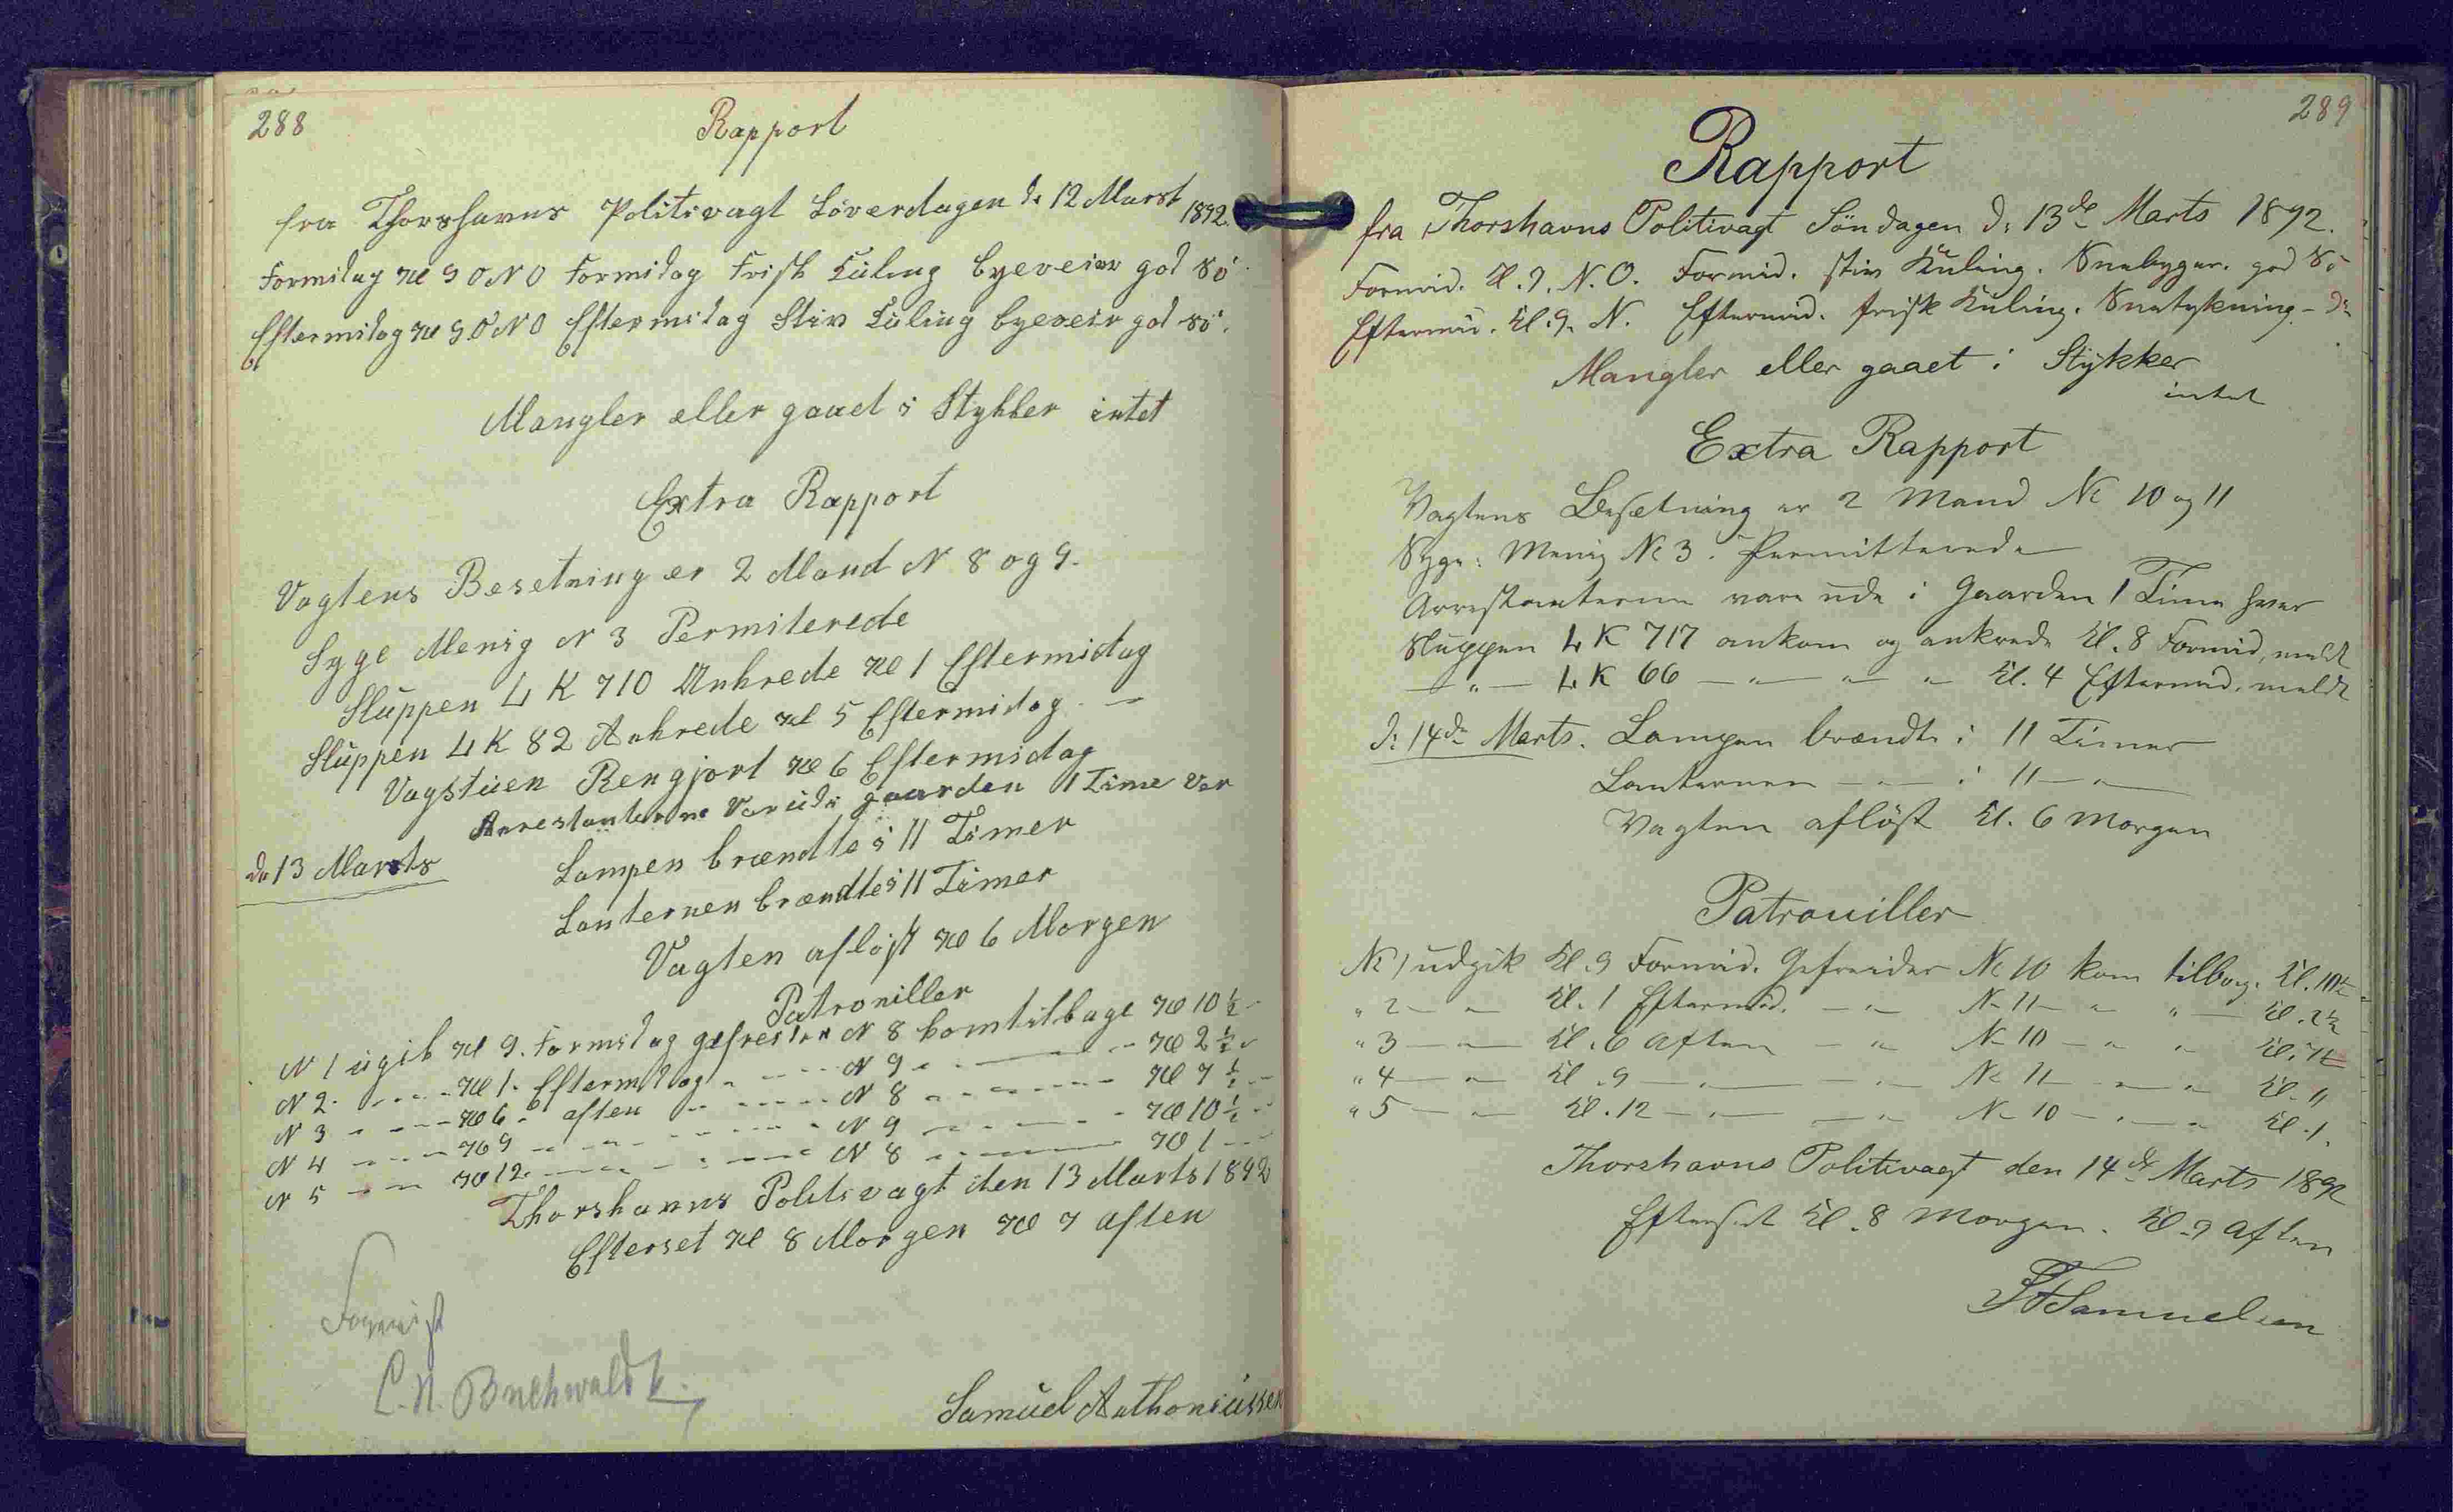 288
Rapport
fra Thorshavns Politivagt Löverdagen d: 12 Marst 1892.
Formidag Kl 9 O N O Formidag Frisk Kuling byeveier god Sö
Eftermidag Kl 9 O N O Eftermidag Stiv Kuling byeveir god Sö.
Mangler eller gaaed i Stykker intet
Extra Rapport
Vagtens Besetning er 2 Mand N 8 og 9.
Syge Menig N 3 Permiterede
Sluppen L K 710 Ankrede Kl 1 Eftermidag
Sluppen L K 82 Ankrede Kl 5 Eftermidag. —
Vagstuen Rengjort Kl 6 Eftermidag
Arrestanterne Var ude i gaarden 1 Time Ver
d. 13 Marsts Lampen brændte i 11 Timer
Lanternen brændte i 11 Timer
Vagten afløst Kl 6 Morgen
Patroniller
N 1 ugik Kl 9. Formidag gefreider N 8 kom tilbage Kl 10 ½
N 2. - - - - Kl 1. Eftermidag - - - - N 9 - - — - Kl 2 ½
N 3 - - - - Kl 6 - aften - - - - - N 8 - - - - - Kl 7 ½
N 4 - - - - Kl 9 - - - - - - - N 9 - - - - Kl 10 ½
N 5 - - - Kl 12. - - - - - - N 8 - - - — Kl 1 - -
Thorshavns Politivagt den 13 Marts 1892
Efterset Kl 8 Morgen Kl 7 aften
Forevist
C. N. Buchwaldt.
Samuel Anthoniussen
289
Rapport
fra Thorshavns Politivagt Söndagen d: 13de Marts 1892.
Formid. Kl. 9. N. O. Formid. stiv Kuling. Snebyger. god Sö
Eftermid. Kl. 9. N. Eftermid. frisk Kuling. Snetykning - do
Mangler eller gaaet i Stykker
intet
Extra Rapport
Vagtens Besætning er 2 Mand No 10 og 11
Syge: Menig No 3. Permitterede
Arrestanterne vare ude i Gaarden 1 Time hver
Sluppen L K 717 ankom og ankrede Kl. 8 Formid, meldt
— " — L K 66 — " — " — " Kl. 4 Eftermid. meldt
d: 14de Marts. Lampen brændte i 11 Timer
Lanternen — " — i 11 — "
Vagten afløst Kl. 6 Morgen
Patrouiller
No 1 udgik Kl. 9 Formid. Gefreider No 10 kom tilbag. Kl. 10½
" 2 — " Kl. 1 Eftermid. — " — No 11 — " " — Kl. 2½
" 3 — " — Kl. 6 Aften — " No 10 — " " Kl. 7½
" 4 — " Kl. 9 — " — — " — No 11 — " — " Kl. 11
" 5 — " Kl. 12 — " — — " No 10 — " — " Kl. 1.
Thorshavns Politivagt den 14de Marts 1892
Efterset Kl. 8 Morgen. Kl. 7 Aften
Samuelsen